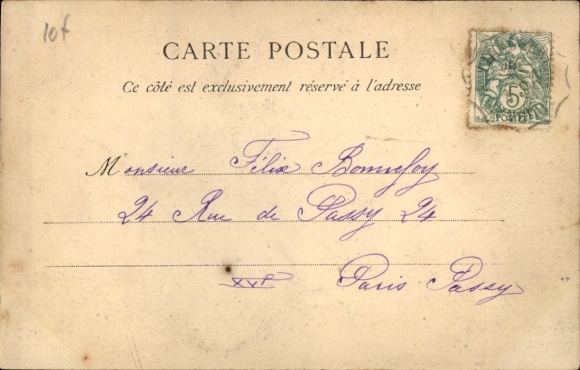 10f
CARTE POSTALE
Ce côté est exclusivement réservé à l'adresse
5
POSTES
Monsieur Félix Bonnefoy
24 Rue de Passy 24
XVIe Paris-Passy